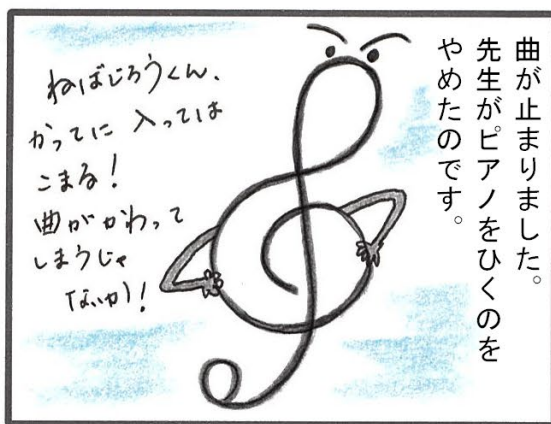 曲が止まりました。
先生がピアノをひくのを
やめたのです。
ねばじろうくん、
かってに入っては
こまる！
曲がかわって
しまうじゃ
ないか！